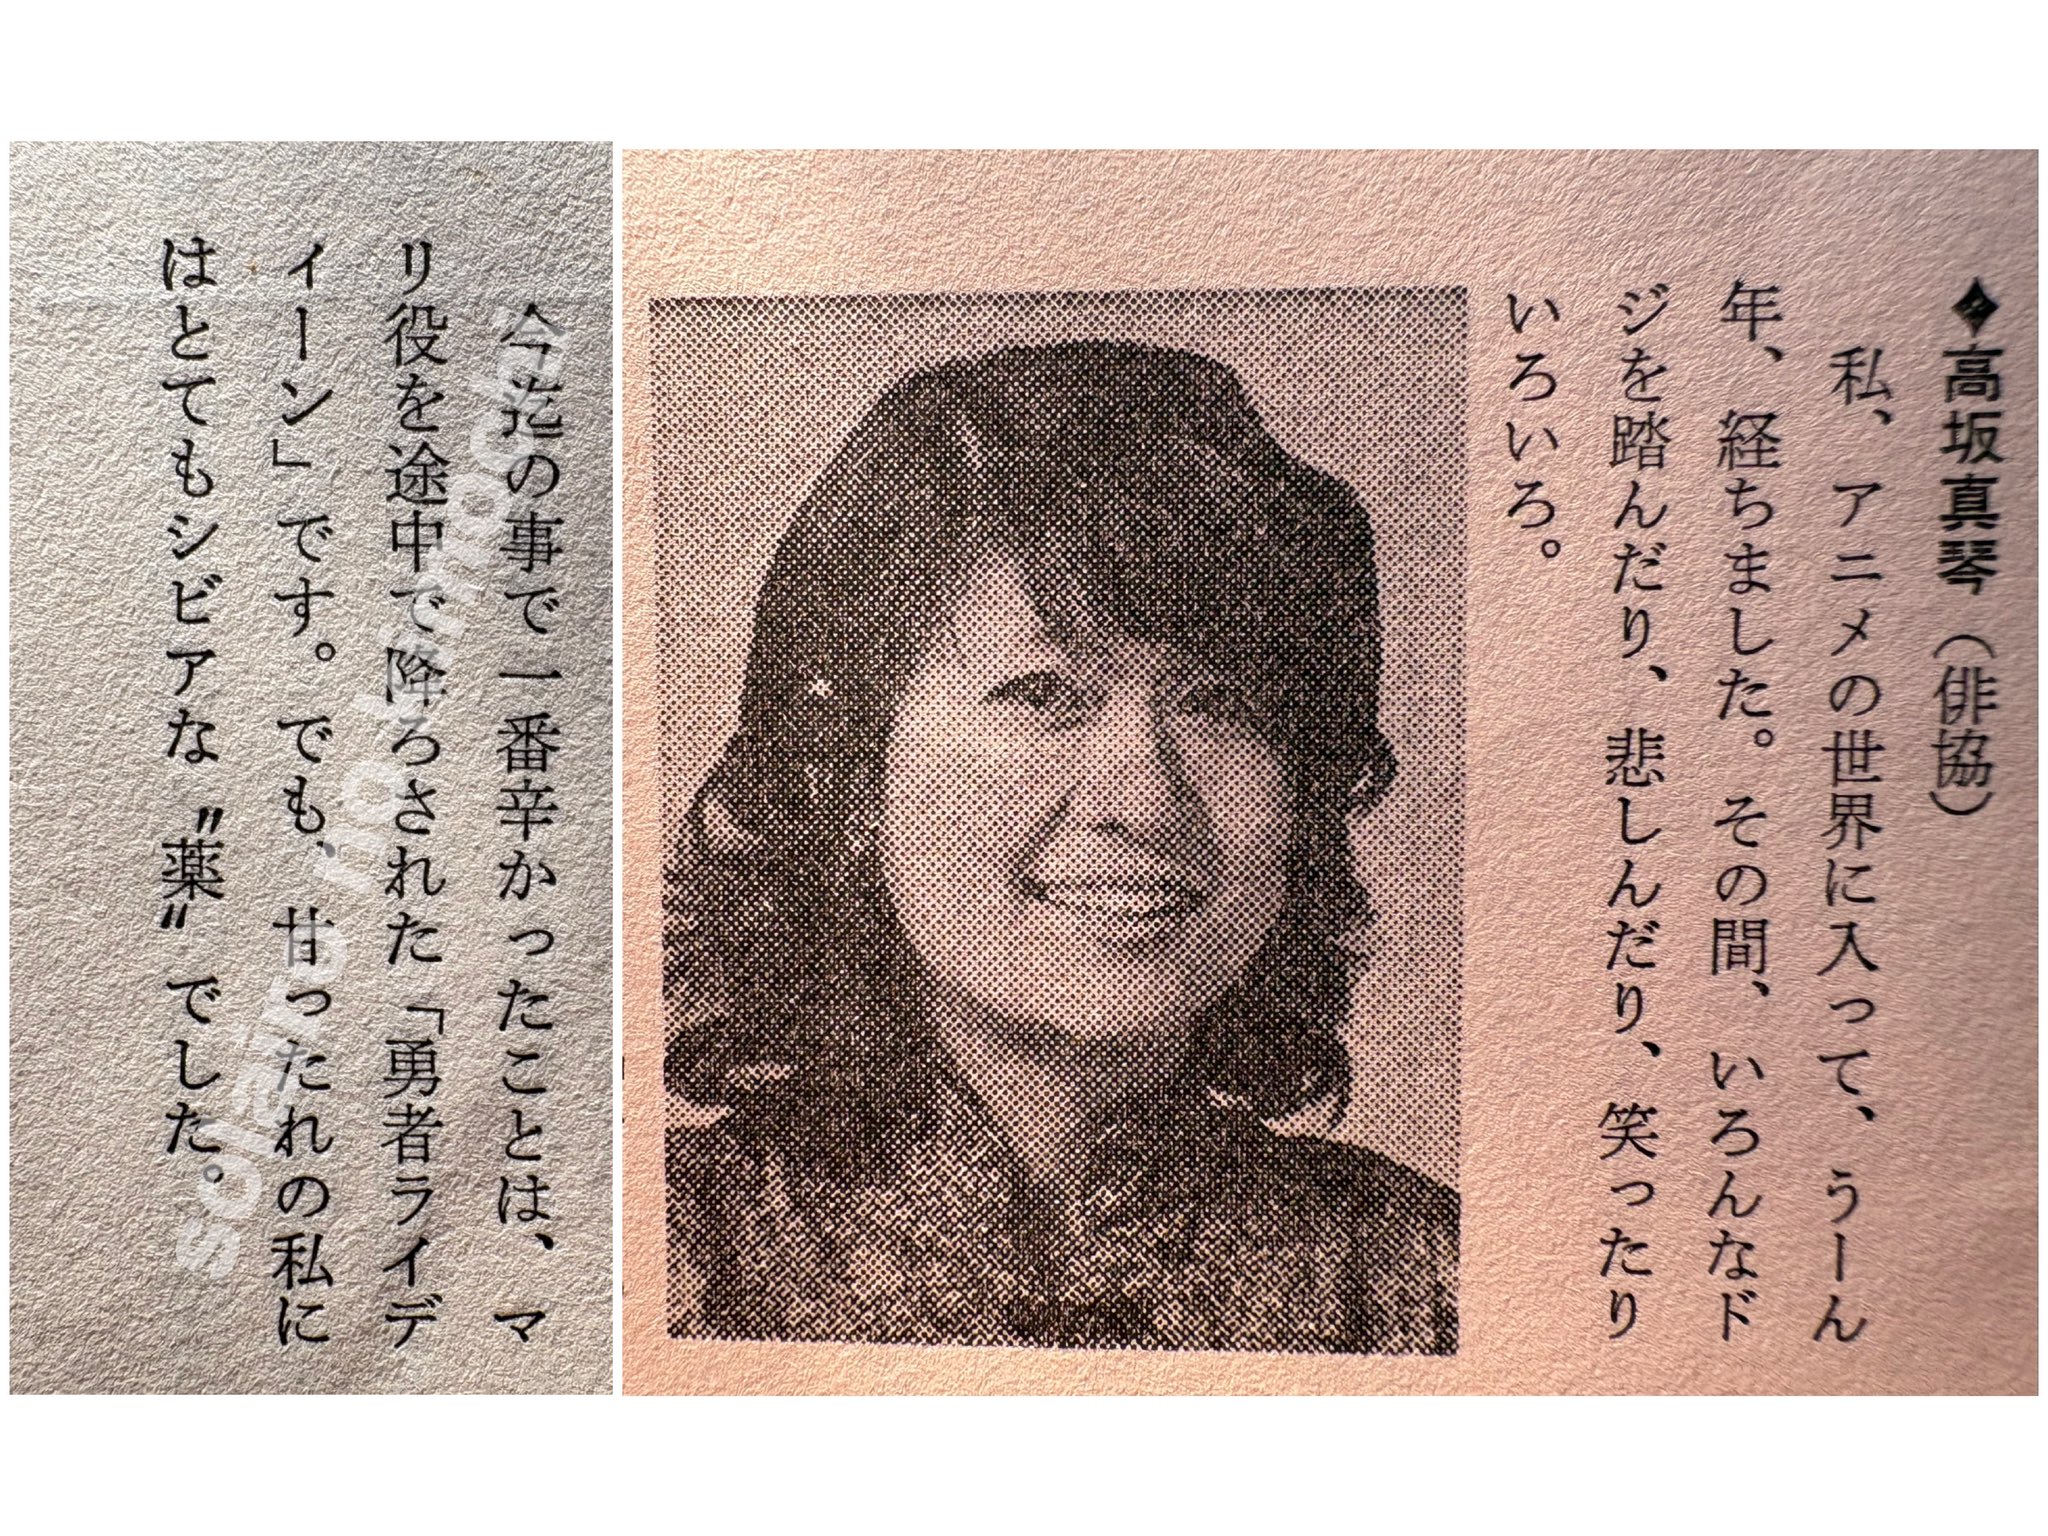 ◆高坂真琴（俳協）
私、アニメの世界に入って、うーん
年、経ちました。その間、いろんなド
ジを踏んだり、悲しんだり、笑ったり
いろいろ。
今迄の事で一番辛かったことは、マ
リ役を途中で降ろされた「勇者ライデ
ィーン」です。でも、甘ったれの私に
はとてもシビアな〝薬〟でした。
solaris no kimochi